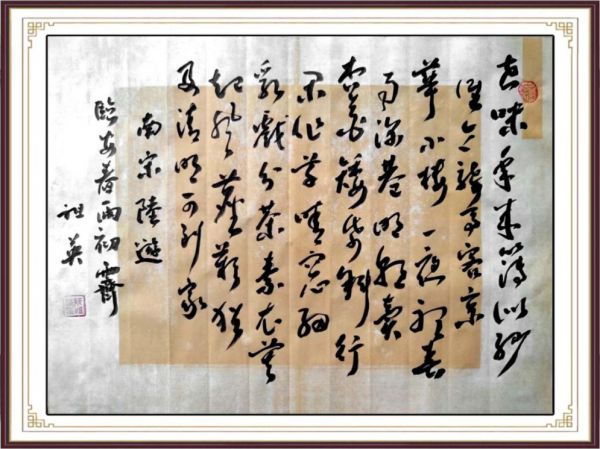 世味年来薄似紗
谁令骑马客京
華小楼一夜听春
雨深巷明朝卖
杏花矮紙斜行
闲作草晴窓细
乳戲分茶素衣莫
起风尘歎猶
及清明可到家
南宋陸遊
臨安春雨初霽
祖英